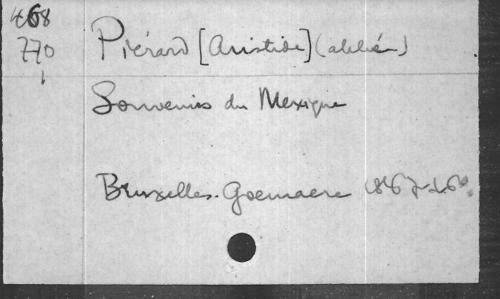 468
770
Piérard [Aristide] (abbé)
Souvenirs du Mexique
Bruxelles. Goemaere 1867